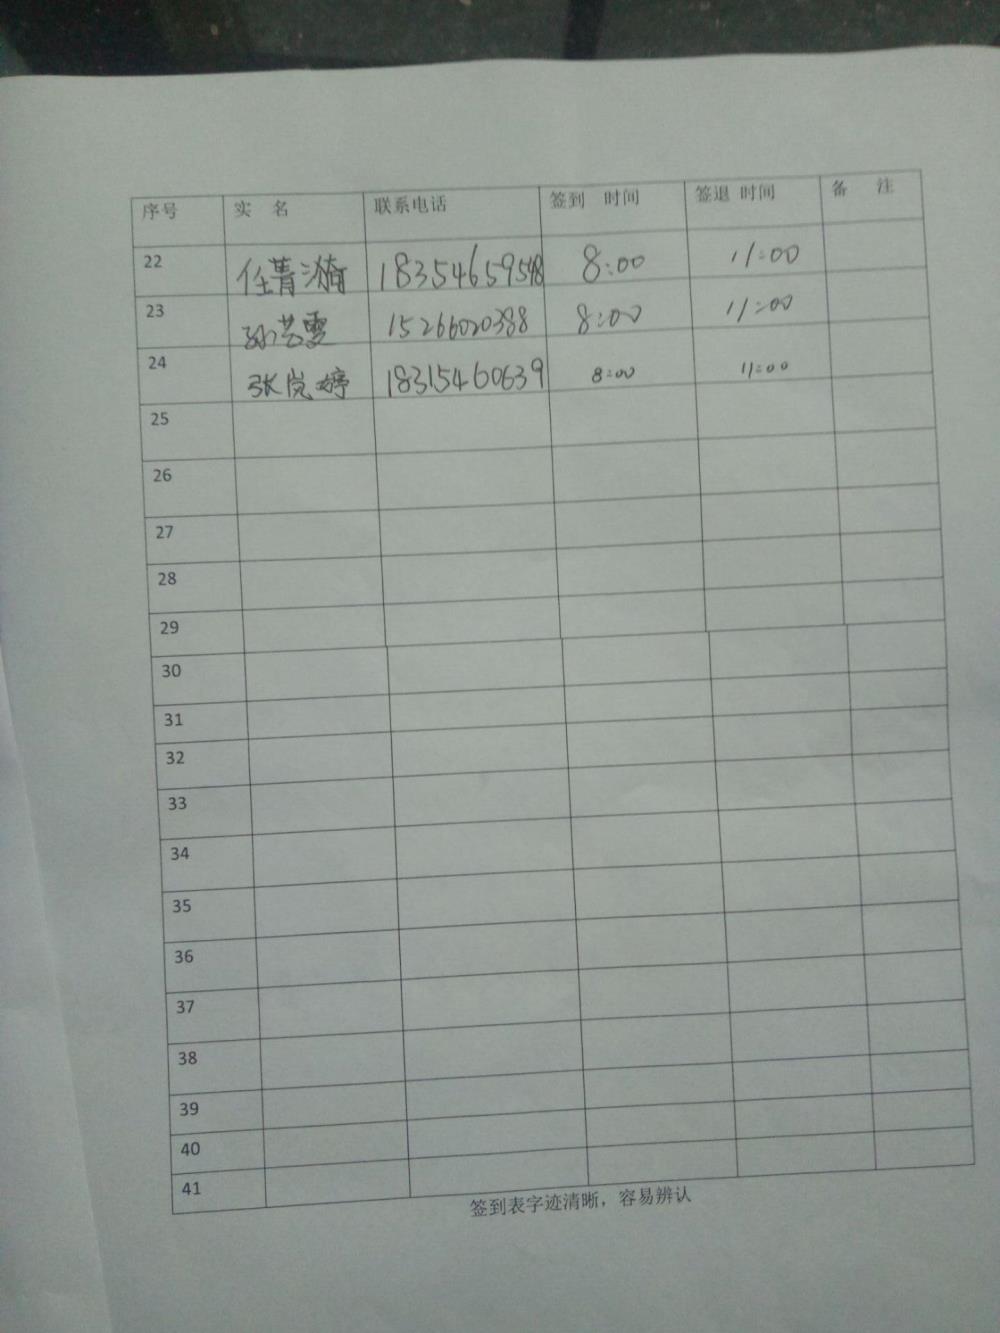 序号 实 名 联系电话 签到 时间 签退 时间 备 注
22 任菁漪 18354659548 8:00 11:00
23 孙芸雯 15266020388 8:00 11:00
24 张岚婷 18315460639 8:00 11:00
25
26
27
28
29
30
31
32
33
34
35
36
37
38
39
40
41
签到表字迹清晰，容易辨认